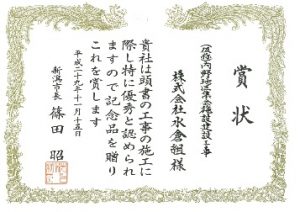 賞状
株式会社水倉組様
貴社は頭書の工事の施工に
際し特に優秀と認められ
ますので記念品を贈り
これを賞します
平成二十九年十一月十五日
新潟市長 篠田 昭